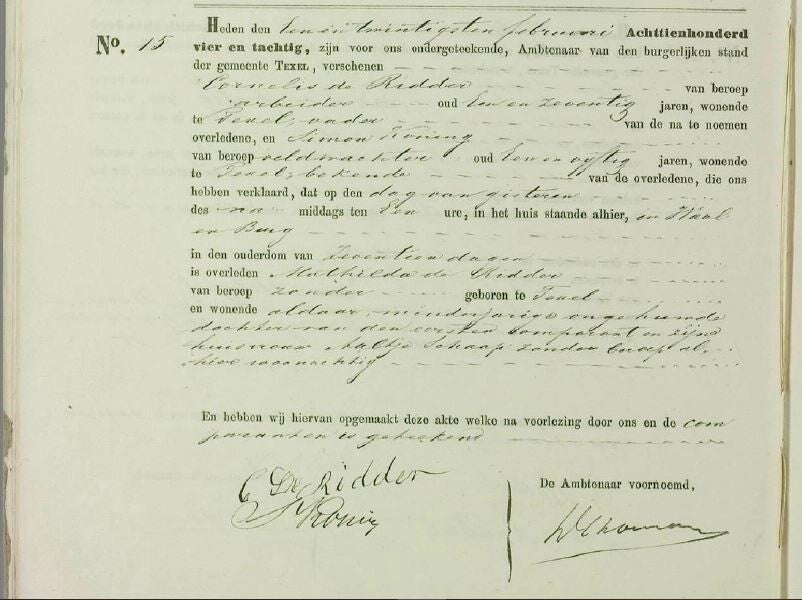 No. 15
Heden den een en twintigsten februari Achttienhonderd
vier en tachtig, zijn voor ons ondergeteekende, Ambtenaar van den burgerlijken stand
der gemeente TEXEL, verschenen
Cornelis de Ridder van beroep
arbeider oud Een en zeventig jaren, wonende
te Texel, vader van de na te noemen
overledene, en Simon Koning
van beroep veldwachter oud Een en vijftig jaren, wonende
te Texel, bekende van de overledene, die ons
hebben verklaard, dat op den dag van gisteren
des na middags ten Een ure, in het huis staande alhier, in Waal
en Burg
in den ouderdom van Zeventien dagen
is overleden Mathilda de Ridder
van beroep zonder geboren te Texel
en wonende aldaar, minderjarige ongehuwde
dochter van den eersten comparant en zijne
huisvrouw Aaltje Schaap zonder beroep al-
hier woonachtig
En hebben wij hiervan opgemaakt deze akte welke na voorlezing door ons en de com
paranten is geteekend
C De Ridder
S Koning
De Ambtenaar voornoemd,